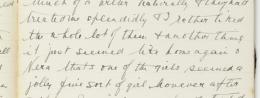 much of a writer naturally & they all
treated me splendidly & I rather liked
the whole lot of them & another thing
it just seemed like home again
that's one of the girls, seemed a
jolly fine sort of girl however after